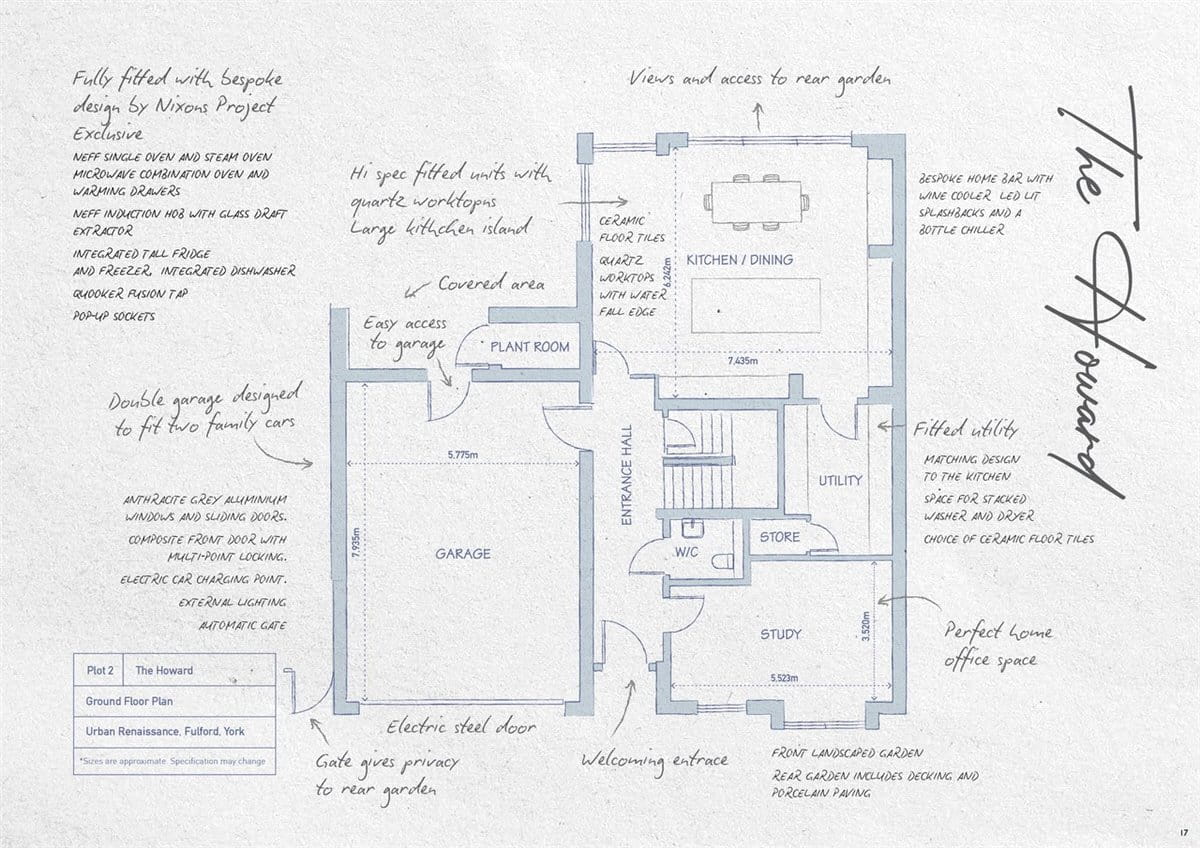 Fully fitted with bespoke
design by Nixons Project
Exclusive
NEFF SINGLE OVEN AND STEAM OVEN
MICROWAVE COMBINATION OVEN AND
WARMING DRAWERS
NEFF INDUCTION HOB WITH GLASS DRAFT
EXTRACTOR
INTEGRATED TALL FRIDGE
AND FREEZER, INTEGRATED DISHWASHER
QUOOKER FUSION TAP
POP-UP SOCKETS
Views and access to rear garden
Hi spec fitted units with
quartz worktopns
Large kithchen island
The Howard
BESPOKE HOME BAR WITH
WINE COOLER LED LIT
SPLASHBACKS AND A
BOTTLE CHILLER
CERAMIC
FLOOR TILES
QUARTZ
WORKTOPS
WITH WATER
FALL EDGE
6.242m
KITCHEN / DINING
7.435m
Covered area
Easy access
to garage
PLANT ROOM
Double garage designed
to fit two family cars
5.775m
7.935m
GARAGE
ENTRANCE HALL
UTILITY
STORE
W/C
Fitted utility
MATCHING DESIGN
TO THE KITCHEN
SPACE FOR STACKED
WASHER AND DRYER
CHOICE OF CERAMIC FLOOR TILES
ANTHRACITE GREY ALUMINIUM
WINDOWS AND SLIDING DOORS.
COMPOSITE FRONT DOOR WITH
MULTI-POINT LOCKING.
ELECTRIC CAR CHARGING POINT.
EXTERNAL LIGHTING
AUTOMATIC GATE
STUDY
3.520m
5.523m
Perfect home
office space
Plot 2 The Howard
Ground Floor Plan
Urban Renaissance, Fulford, York
*Sizes are approximate. Specification may change
Electric steel door
Gate gives privacy
to rear garden
Welcoming entrace
FRONT LANDSCAPED GARDEN
REAR GARDEN INCLUDES DECKING AND
PORCELAIN PAVING
17